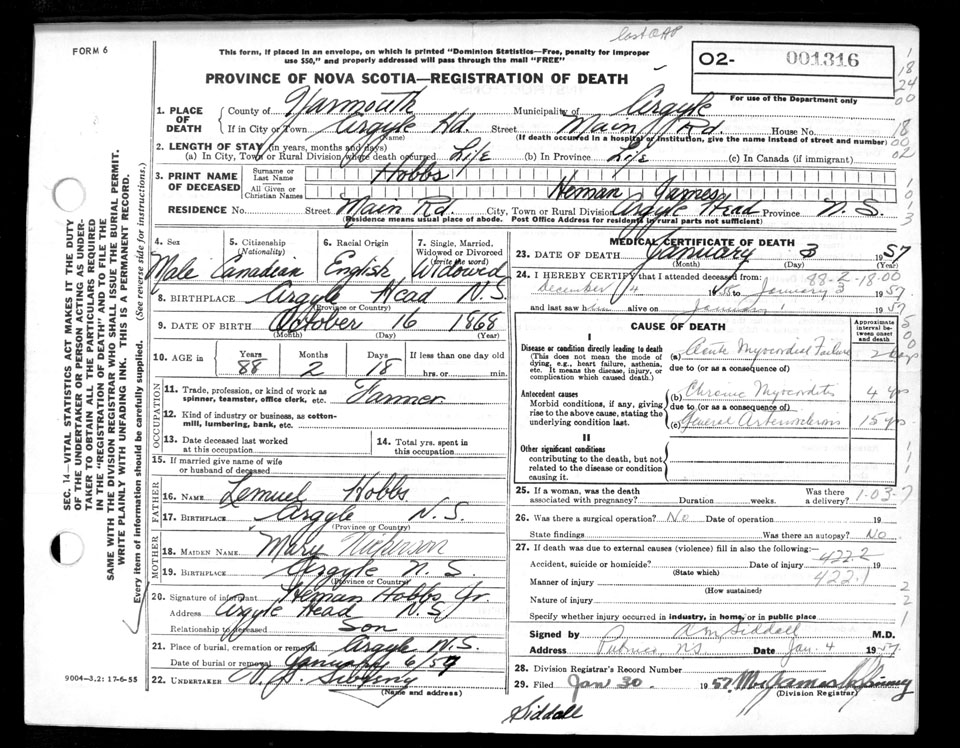 FORM 6
This form, if placed in an envelope, on which is printed "Dominion Statistics—Free, penalty for improper
use $50," and properly addressed will pass through the mail "FREE"
PROVINCE OF NOVA SCOTIA—REGISTRATION OF DEATH
02- 001316
For use of the Department only
1. PLACE OF DEATH
County of Yarmouth Municipality of Argyle
If in City or Town Argyle Hd. Street Main Rd. House No.
(Name) (If death occurred in a hospital or institution, give the name instead of street and number)
2. LENGTH OF STAY (in years, months and days)
(a) In City, Town or Rural Division where death occurred Life (b) In Province Life (c) In Canada (if immigrant)
3. PRINT NAME OF DECEASED
Surname or Last Name Hobbs
All Given or Christian Names Heman James
RESIDENCE No. Street Main Rd. City, Town or Rural Division Argyle Head Province N.S.
(Residence means usual place of abode. Post Office Address for residents in rural parts not sufficient)
4. Sex Male
5. Citizenship (Nationality) Canadian
6. Racial Origin English
7. Single, Married, Widowed or Divorced (write the word) Widowed
8. BIRTHPLACE Argyle Head N.S.
(Province or Country)
9. DATE OF BIRTH October 16 1868
(Month) (Day) (Year)
10. AGE in Years 88 Months 2 Days 18 If less than one day old hrs. or min.
OCCUPATION
11. Trade, profession, or kind of work as spinner, teamster, office clerk, etc. Farmer
12. Kind of industry or business, as cotton-mill, lumbering, bank, etc.
13. Date deceased last worked at this occupation
14. Total yrs. spent in this occupation
15. If married give name of wife or husband of deceased
FATHER
16. NAME Lemuel Hobbs
17. BIRTHPLACE Argyle N.S.
(Province or Country)
MOTHER
18. MAIDEN NAME Mary Nickerson
19. BIRTHPLACE Argyle N.S.
(Province or Country)
20. Signature of informant Heman Hobbs Jr.
Address Argyle Head N.S.
Relationship to deceased Son
21. Place of burial, cremation or removal Argyle N.S.
Date of burial or removal January 6/57
22. UNDERTAKER
(Name and address)
MEDICAL CERTIFICATE OF DEATH
23. DATE OF DEATH January 3 1957
(Month) (Day) (Year)
88-2-18-00
24. I HEREBY CERTIFY that I attended deceased from:
December 4 to January 3 1957
and last saw him alive on January 1957
CAUSE OF DEATH
Approximate interval between onset and death
I
Disease or condition directly leading to death
(This does not mean the mode of dying, e.g., heart failure, asthenia, etc. It means the disease, injury, or complication which caused death.)
(a) Acute Myocardial Failure 2 days
due to (or as a consequence of)
Antecedent causes
Morbid conditions, if any, giving rise to the above cause, stating the underlying condition last.
(b) Chronic Myocarditis 4 yrs
due to (or as a consequence of)
(c) General Arteriosclerosis 15 yrs
II
Other significant conditions
contributing to the death, but not related to the disease or condition causing it.
25. If a woman, was the death associated with pregnancy? Duration weeks. Was there a delivery?
26. Was there a surgical operation? No Date of operation 19
State findings Was there an autopsy? No
27. If death was due to external causes (violence) fill in also the following:—
Accident, suicide or homicide? Date of injury 19
(State which)
422.2
422.1
Manner of injury
(How sustained)
Nature of injury
Specify whether injury occurred in industry, in home, or in public place
Signed by Siddall M.D.
Address Pubnico, NS Date Jan. 4 1957
28. Division Registrar's Record Number
29. Filed Jan 30 1957 Mrs James
(Division Registrar)
Siddall
SEC. 14—VITAL STATISTICS ACT MAKES IT THE DUTY
OF THE UNDERTAKER OR PERSON ACTING AS UNDER-
TAKER TO OBTAIN ALL THE PARTICULARS REQUIRED
IN THE "REGISTRATION OF DEATH" AND TO FILE THE
SAME WITH THE DIVISION REGISTRAR WHO SHALL ISSUE THE BURIAL PERMIT.
WRITE PLAINLY WITH UNFADING INK. THIS IS A PERMANENT RECORD.
Every item of information should be carefully supplied. (See reverse side for instructions.)
9004-3.2: 17-6-55